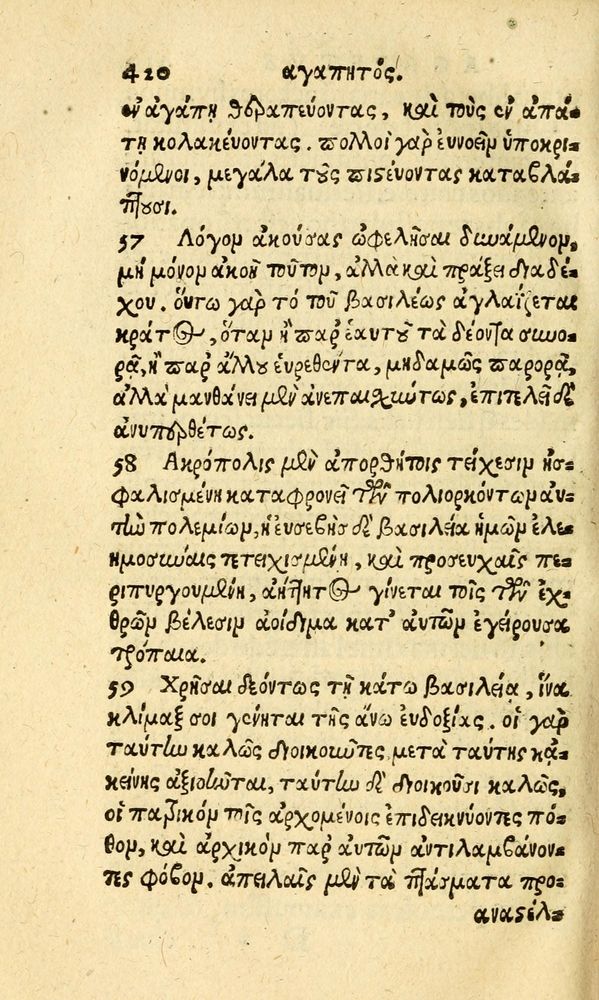 420 ἀγαπητός.
ἐν ἀγάπῃ θεραπεύοντας, καὶ τοὺς ἐν ἀπά-
τῃ κολακέυοντας. πολλοὶ γὰρ ἐυνοεῖμ ὑποκρι-
νόμενοι, μεγάλα τοὺς πιστέυοντας καταβλά-
πτουσι.
57 Λόγομ ἀκούσας ὠφελῆσαι δυνάμενομ,
μὴ μόνομ ἀκοῇ τοῦτομ, ἀλλὰ καὶ πράξει διαδέ-
χου. ὅυτω γὰρ τὸ τοῦ βασιλέως ἀγλαΐζεται
κράτος, ὅταμ ἢ παρ' ἑαυτοῦ τὰ δέοντα συνο-
ρᾷ, ἢ παρ' ἄλλου ἑυρεθέντα, μηδαμῶς παρορᾷ,
ἀλλὰ μανθάνει μὲν ἀνεπαισχύντως, ἐπιτελεῖ δὲ
ἀνυπερθέτως.
58 Ακρόπολις μὲν ἀπορθήτοις τείχεσιμ ἠσ-
φαλισμένη καταφρονεῖ τῶν πολιορκόντωμ ἀυ-
τὴν πολεμίωμ, ἡ ἐυσεβὴς δὲ βασιλεία ἡμῶμ ἐλε-
ημοσύναις τετειχισμένη, καὶ προσευχαῖς πε-
ριπυργουμένη, ἀήττητος γίνεται τοῖς τῶν ἐχ-
θρῶμ βέλεσιμ ἀοίδιμα κατ' ἀυτῶμ ἐγείρουσα
τρόπαια.
59 Χρῆσαι δεόντως τῇ κάτω βασιλείᾳ, ἵνα
κλίμαξ σοι γένηται τῆς ἄνω ἐυδοξίας. οἱ γὰρ
ταύτην καλῶς διοικοῦντες, μετὰ ταύτης κἀ-
κείνης ἀξιοῦνται, ταύτην δὲ διοικοῦσι καλῶς,
οἱ πατρικὸμ τοῖς ἀρχομένοις ἐπιδεικνύοντες πό-
θομ, καὶ ἀρχικὸμ παρ' ἀυτῶμ ἀντιλαμβάνον-
τες φόβομ. ἀπειλαῖς μὲν τὰ πταίσματα προ-
αναστέλ-